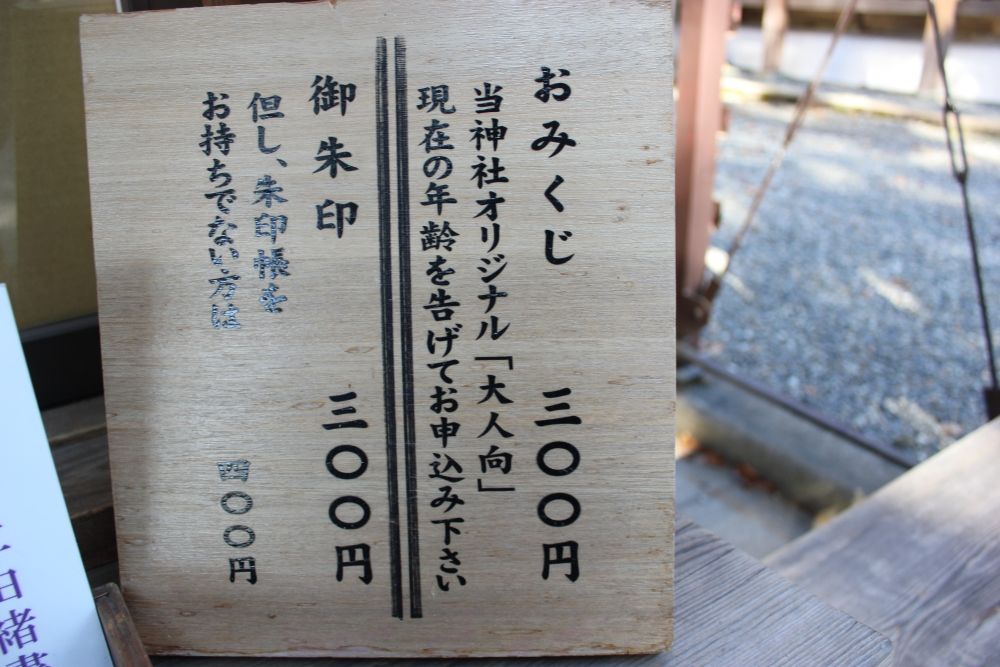 おみくじ 三〇〇円
当神社オリジナル「大人向」
現在の年齢を告げてお申込み下さい
御朱印 三〇〇円
但し、朱印帳を
お持ちでない方は 四〇〇円
由緒書